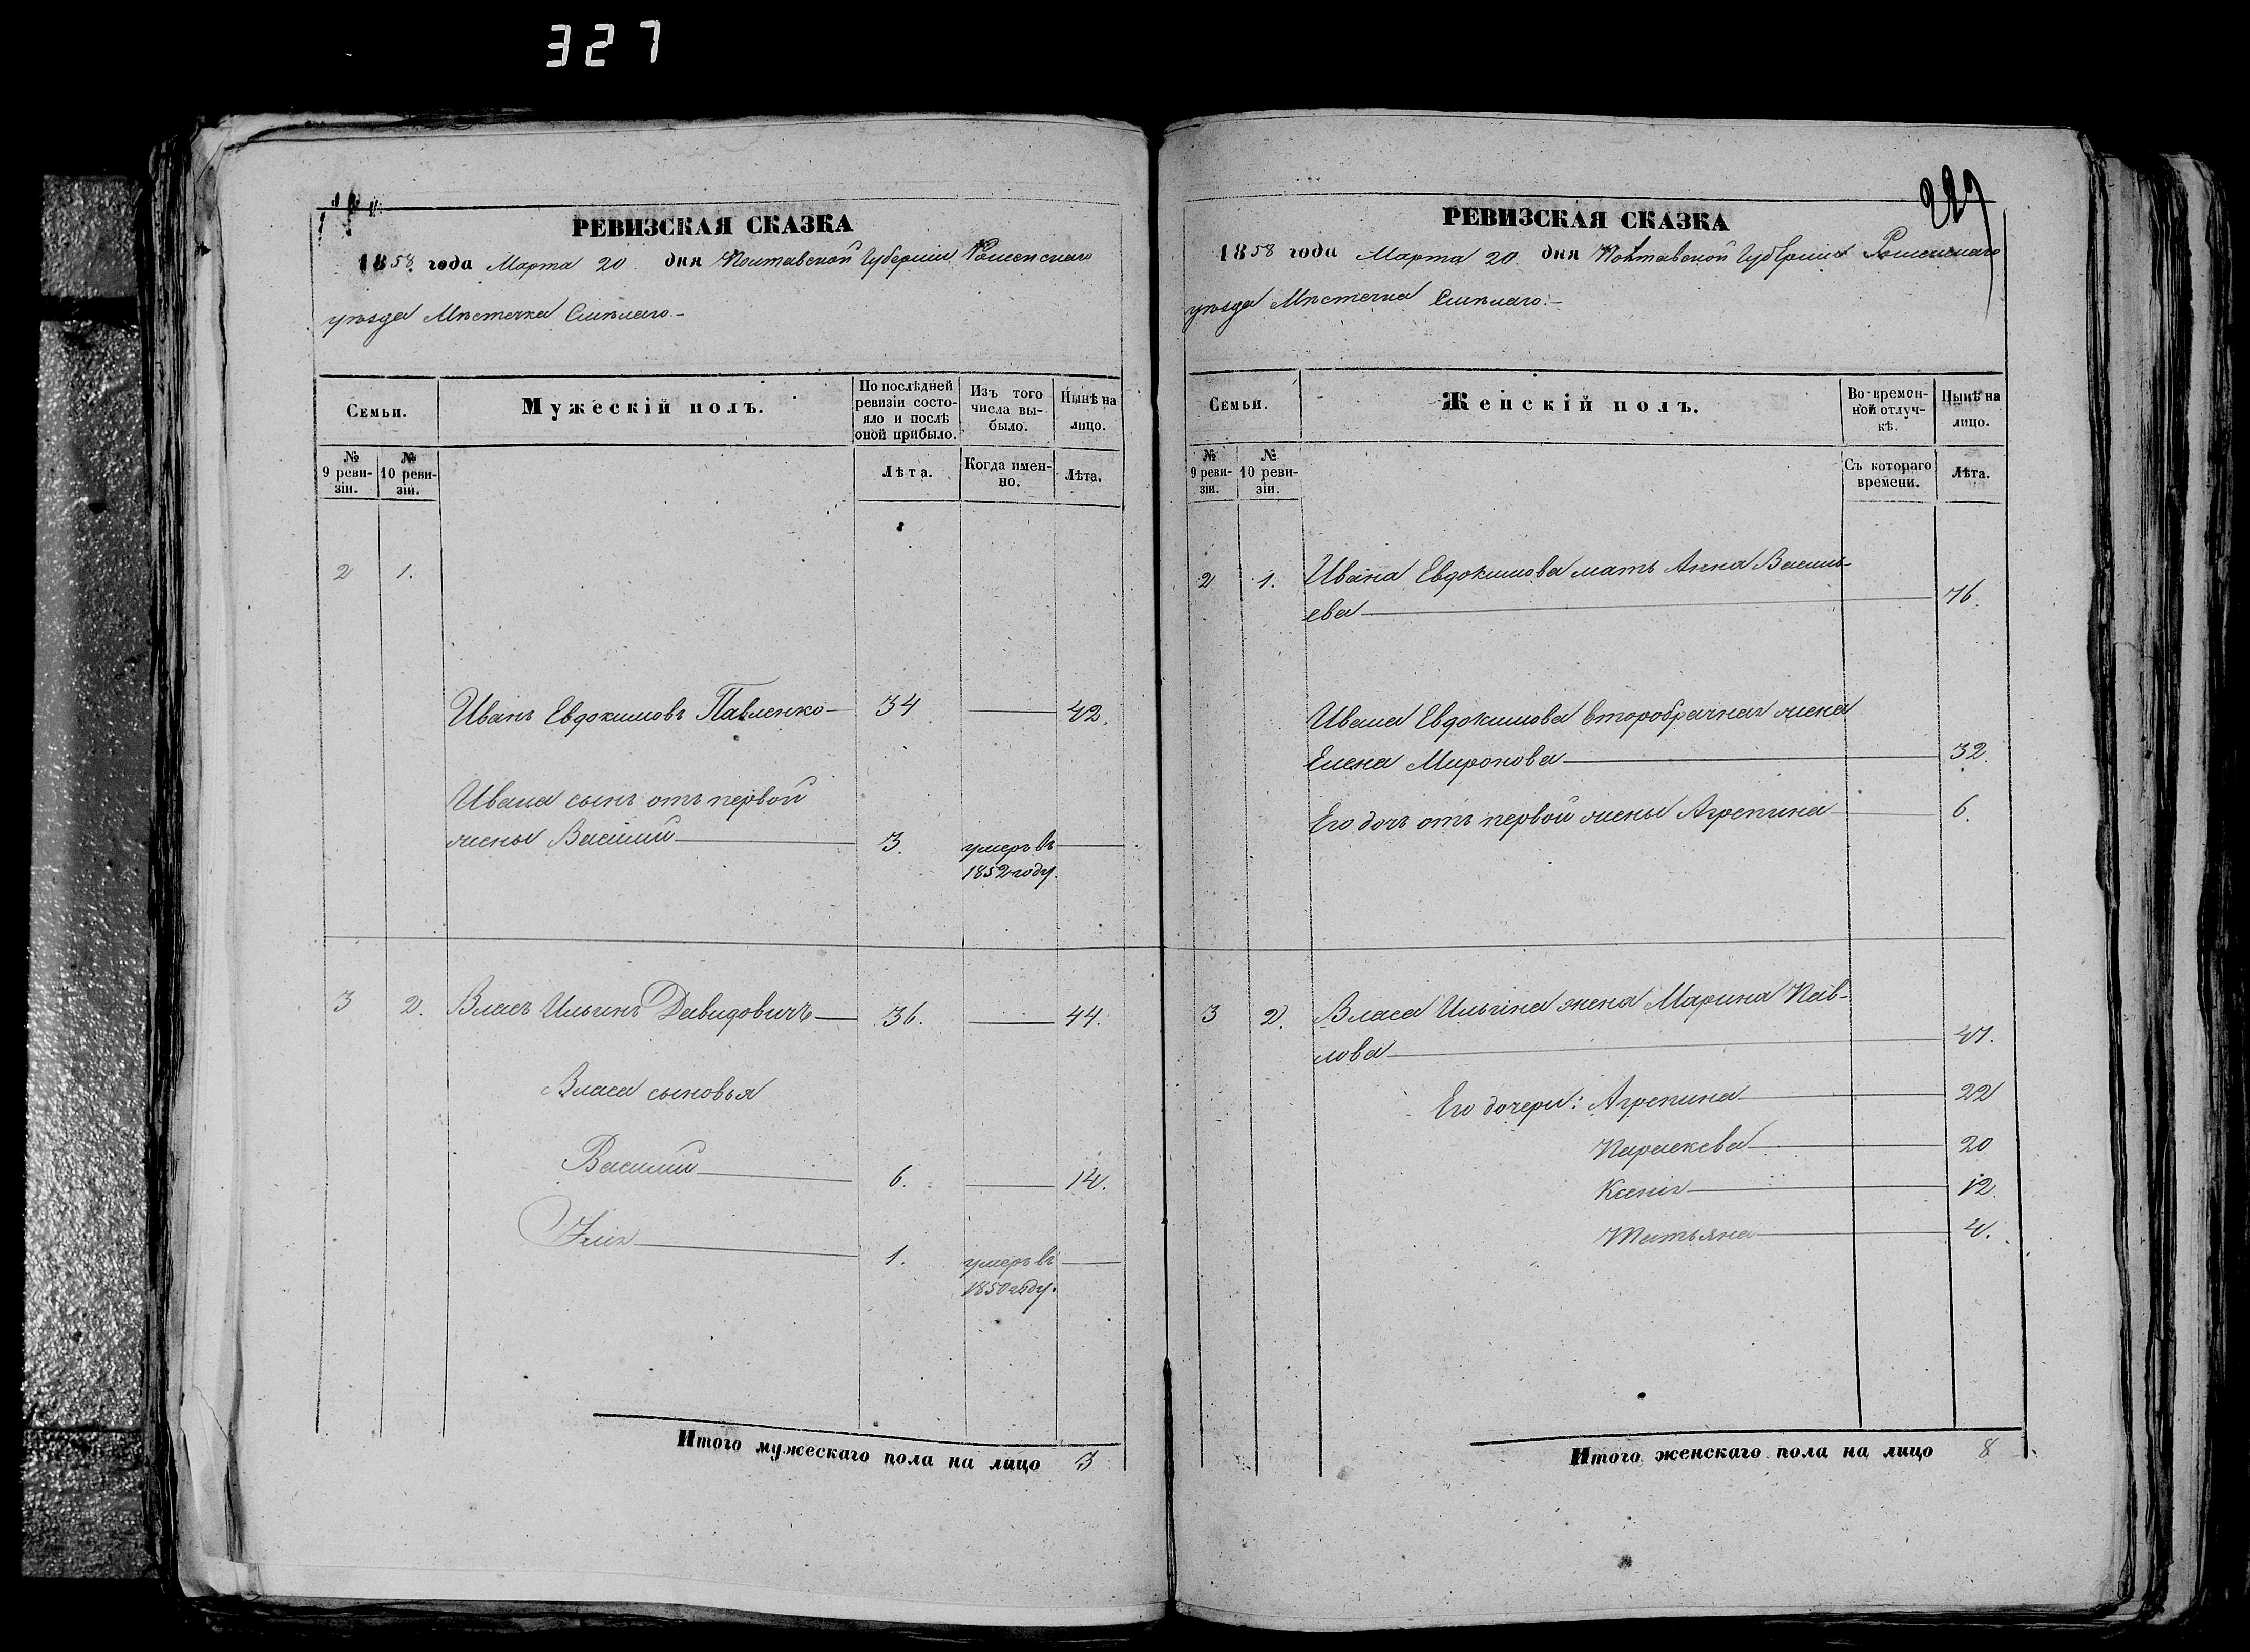 327
РЕВИЗСКАЯ СКАЗКА
1858 года Марта 20 дня Полтавской Губерніи Роменскаго
уѣзда Мѣстечка Смѣлаго.-
Семьи.
Мужескій полъ.
По послѣдней ревизіи состояло и послѣ оной прибыло.
Изъ того числа выбыло.
Нынѣ на лицо.
№ 9 ревизіи.
№ 10 ревизіи.
Лѣта.
Когда именно.
Лѣта.
2 1.
Иванъ Евдокимовъ Павленко 34 42.
Ивана сынъ отъ первой
жены Василий 3. умеръ въ
1852 году.
3 2. Власъ Ильинъ Давидовичъ 36. 44.
Власа сыновья
Василий 6. 14.
Илія 1. умеръ въ
1850 году.
Итого мужескаго пола на лицо 3
229
РЕВИЗСКАЯ СКАЗКА
1858 года Марта 20 дня Полтавской Губерніи Роменскаго
уѣзда Мѣстечка Смѣлаго.-
Семьи.
Женскій полъ.
Во-временной отлучкѣ.
Нынѣ на лицо.
№ 9 ревизіи.
№ 10 ревизіи.
Съ котораго времени.
Лѣта.
2 1. Ивана Евдокимова мать Анна Василь-
ева 76.
Ивана Евдокимова второбрачная жена
Елена Миронова 32.
Его дочь отъ первой жены Агрепина 6.
3 2. Власа Ильина жена Марина Пав-
лова 41.
Его дочери: Агрепина 22
Параскева 20
Ксенія 12.
Татьяна 4.
Итого женскаго пола на лицо 8